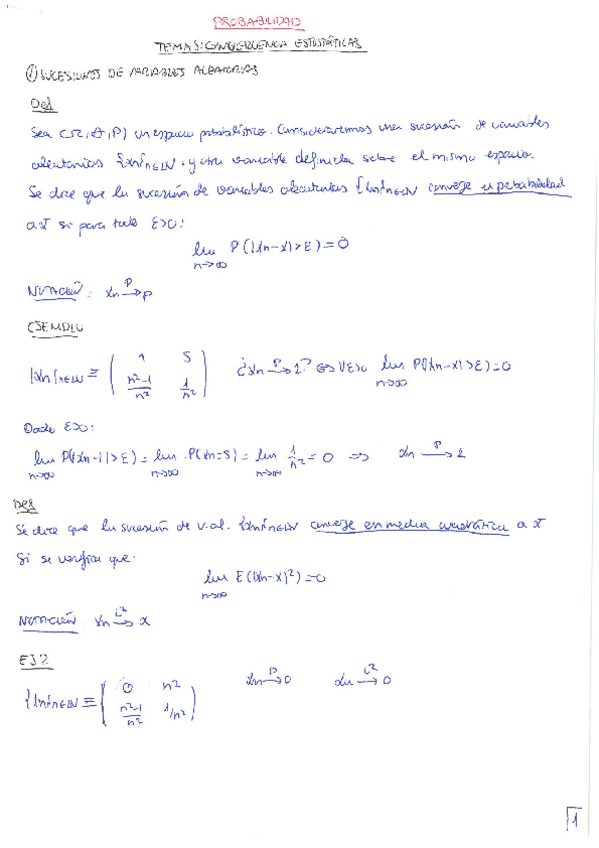 PROBABILIDAD
TEMA 5: CONVERGENCIA ESTOSTÁTICAS
① SUCESIONES DE VARIABLES ALEATORIAS
Def
Sea (Ω, A, P) un espacio probabilístico. Consideraremos una sucesión de variables
aleatorias {Xn}n∈ℕ y otra variable definida sobre el mismo espacio.
Se dice que la sucesión de variables aleatorias {Xn}n∈ℕ converge en probabilidad
a X si para todo ε>0:
lim n→∞ P(|Xn-X|>ε)=0
NOTACIÓN: Xn →P p
EJEMPLO
{Xn}n∈ℕ ≡ ( 1 5 ; n²-1/n² 1/n² ) ¿Xn →P 1? ⇔ ∀ε>0 lim n→∞ P(|Xn-X|>ε)=0
Dado ε>0:
lim n→∞ P(|Xn-1|>ε) = lim n→∞ P(Xn=5) = lim n→∞ 1/n² = 0 ⇒ Xn →P 1
Def
Se dice que la sucesión de v.al. {Xn}n∈ℕ converge en media cuadrática a X
si se verifica que:
lim n→∞ E(|Xn-X|²)=0
NOTACIÓN Xn →L² X
EJ 2
{Xn}n∈ℕ ≡ ( 0 n² ; n²-1/n² 1/n² ) Xn →P 0 Xn →L² 0
1